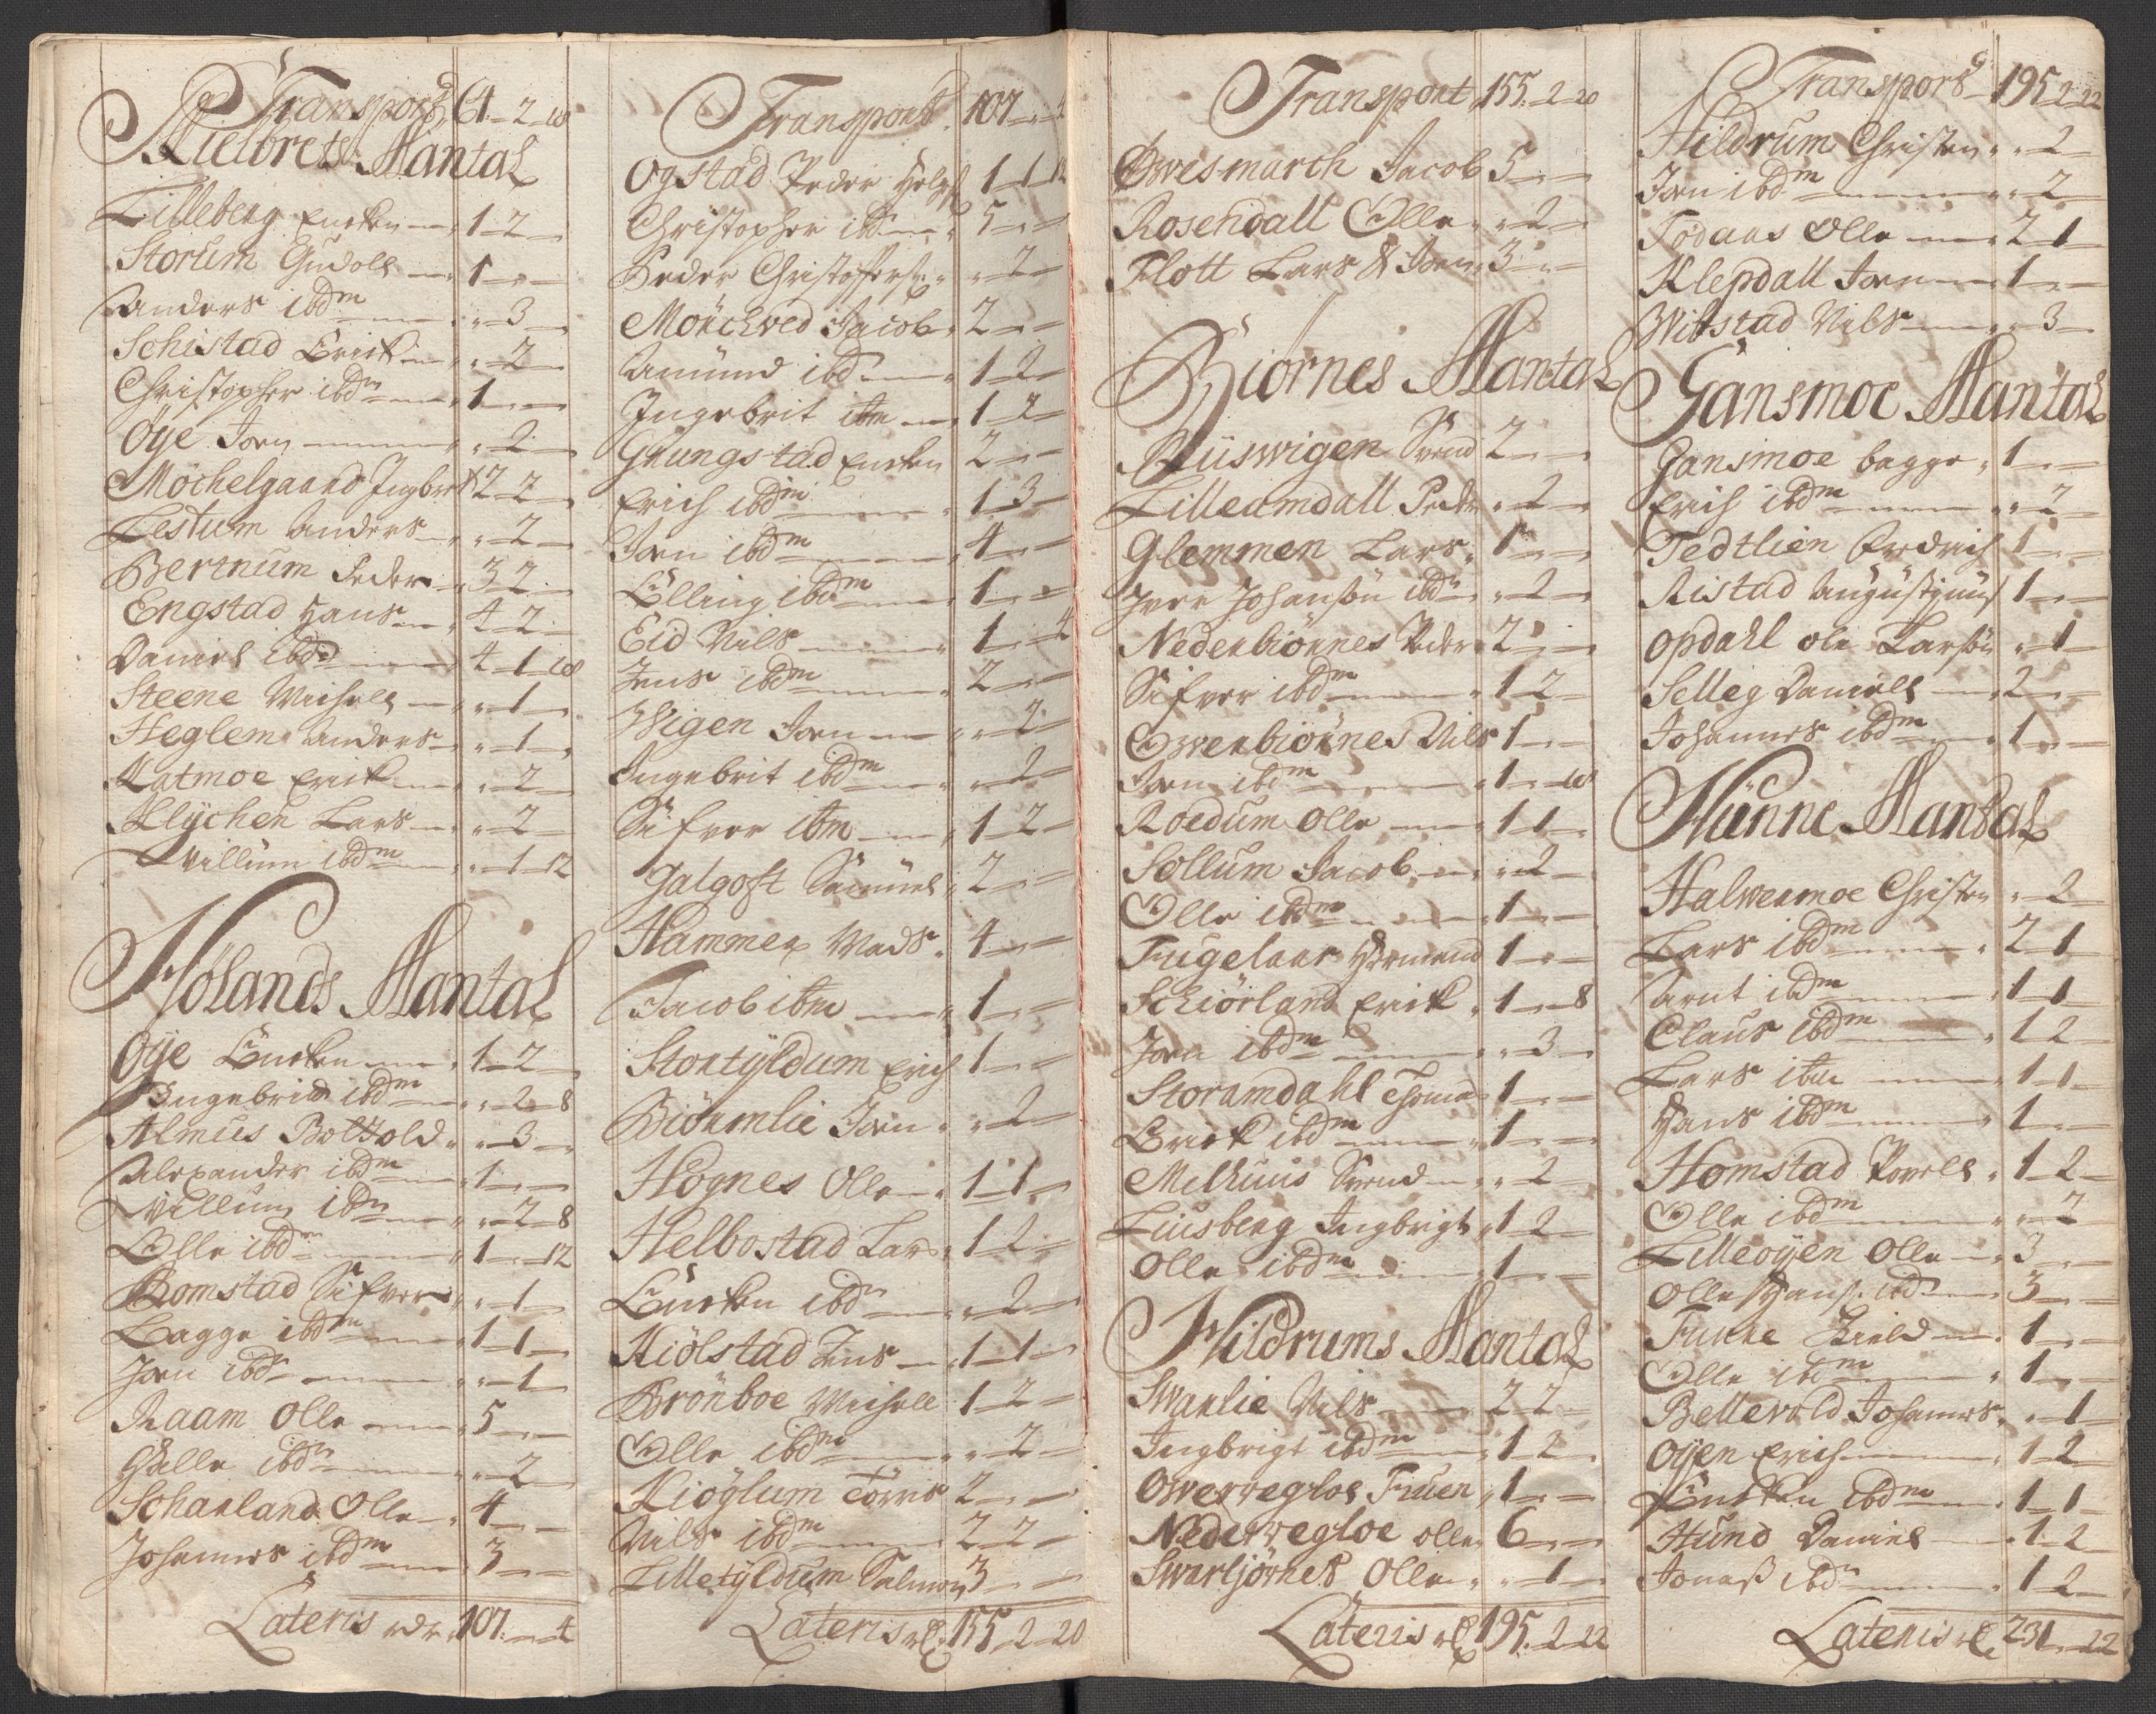 Transport 64 - 2 - 10
Kielbrets Mantal
Lilleberg Encken 1 - 2 -
Storum Gudolf 1 - -
Anders ibdm - 3 -
Schistad Erick - 2 -
Christopher ibdm 1 - -
Öÿe Jon - 2 -
Möchelgaard Ingbret 2 2 -
Lestum Anders - 2 -
Bertnum Peder 3 2 -
Engstad Hans 4 2 -
Daniel ibd 4 - 1 - 10
Steene Michell - 1 -
Heglem Anders - 1 -
Katmoe Erick - 2 -
Klÿchen Lars - 2 -
Villum ibdm - 1 - 12
Hölands Mantal
Oÿe Encken 1 - 2 -
Ingebrict ibdm - 2 - 8
Almius Botzold - 3 -
Alexander ibdm 1 - -
Villum ibdm - 2 - 8
Olle ibdm 1 - 12
Romstad Sifver - 1 -
Bagge ibdm 1 - 1 -
Jon ibd - 1 -
Raam Olle 5 - -
Halle ibdm - 2 -
Schanland Olle 4 - -
Johannes ibdm 3 - -
Lateris rdr 107 - - 4
Transport 107 - - 4
Ogstad Peder 1 - 1 - 12
Christopher ibdm 5 - -
Peder Christofers - 2 -
Mönchved Jacob 2 - -
Amund ibdm 1 - 2 -
Ingebrit ibm 1 - 2 -
Grungstad Encken 2 - -
Erich ibdm 1 - 3 -
Jon ibdm 4 - -
Elling ibdm 1 - -
Eid Nils 1 - - 4
Jens ibdm 2 - -
Wigen Jon - 2 -
Ingebrit ibdm - 2 -
Sifver ibm 1 - 2 -
Galgoft Samuel 2 - -
Hammer Mads 4 - -
Jacob ibm 1 - -
Stortÿldum Erich 1 - -
Biörmlie Jon - 2 -
Högnes Olle 1 - 1 -
Helbostad Lars 1 - 2 -
Encken ibdm - 2 -
Kiölstad Jens 1 - 1 -
Brönboe Michell 1 - 2 -
Olle ibdm - 2 -
Kiöglum Torris 2 - -
Nils ibdm 2 - 2 -
Lilletÿldum Salmon 3 - -
Lateris rd 155 - 2 - 20
Transport 155 - 2 - 20
Øwesmarch Jacob 5 - -
Rosendall Olle - 2 -
Flott Lars & Jon 3 - -
Biornes Mantal
Rüswigen Svend 2 - -
Lilleamdall Peder - 2 -
Glemmen Lars 1 - -
Iver Johansön ibdm - 2 -
Nederbiörnes Peder 2 - -
Sifver ibdm 1 - 2 -
Owerbiörnes Nils 1 - -
Jon ibdm 1 - 10
Roedum Olle 1 - 1 -
Sollum Jacob - 2 -
Olle ibdm 1 - -
Fugelaar Hermand 1 - -
Schiörland Erick 1 - 8
Jon ibdm - 3 -
Storamdahl Thomas 1 - -
Erick ibdm 1 - -
Melhuus Svend - 2 -
Liusberg Ingbrigt 1 - 2 -
Olle ibdm 1 - -
Hildrums Mantal
Swarlie Nils 2 2 -
Ingbrigt ibdm 1 - 2 -
Owerregloe Fruen 1 - -
Nederregloe Olle 6 - -
Swartjörnes Olle - 1 -
Lateris rd 195 - 2 - 22
Transport 195 - 2 - 22
Hildrum Christen - 2 -
Jon ibdm - 2 -
Fodaas Olle 2 - 1
Klepdall Jon 1 - -
Wibstad Nils - 3 -
Gansmoe Mantal
Gansmoe bagge 1 - -
Erich ibdm - 2 -
Tedtlien Fredrich 1 - -
Ristad Augustinus 1 - -
Opdahl ole Larsön - 1 -
Selleg Daniell 2 - -
Johannes ibdm 1 - -
Hünne Mantal
Halwermoe Christen - 2 -
Lars ibdm 2 - 1
Arnt ibdm 1 - 1
Claus ibdm 1 2 -
Lars ibm 1 - 1 -
Hans ibdm 1 - -
Homstad Povell 1 - 2 -
Olle ibdm - 2
Lilleoÿen Olle 3 - -
Olle Hans: ibd 3 - -
Funne Kield 1 - -
Olle ibdm 1 - -
Bellevold Johannes - 1 -
Oÿen Erich 1 - 2 -
Encken ibdm 1 - 1 -
Hund Daniel 1 - 2 -
Jonas ibdm 1 - 2 -
Lateris rd 231 - - 22